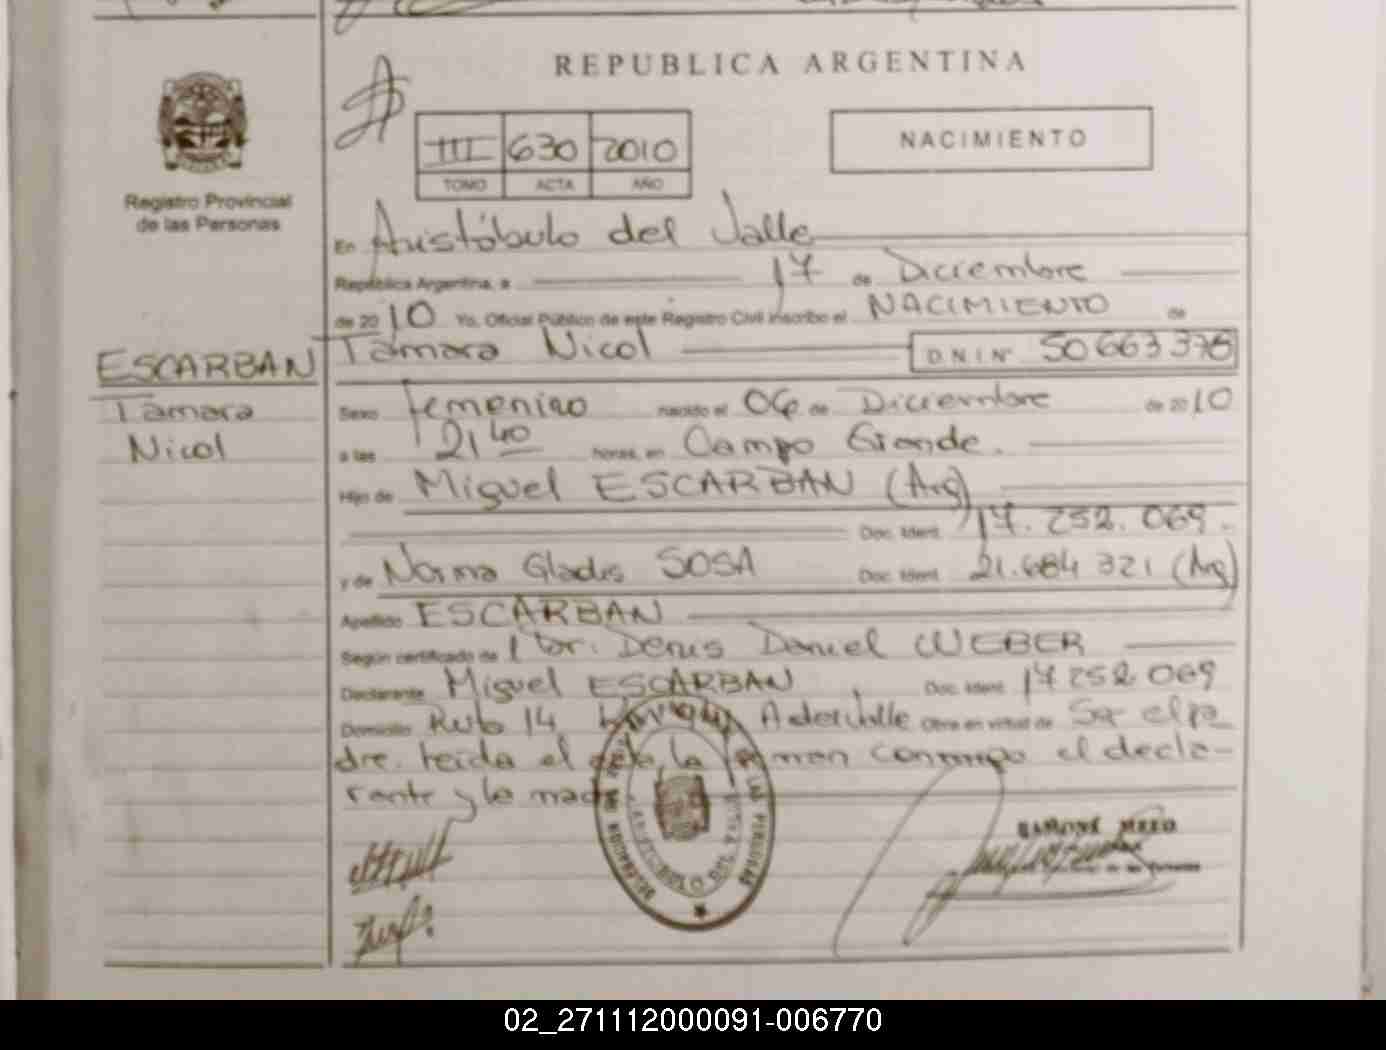 REPUBLICA ARGENTINA
III 630 2010
TOMO ACTA AÑO
NACIMIENTO
Registro Provincial
de las Personas
En Aristóbulo del Valle
República Argentina, a 17 de Diciembre
de 2010 Yo, Oficial Público de este Registro Civil inscribo el NACIMIENTO de
Tamara Nicol D.N.I Nº 50663376
ESCARBAN
Tamara
Nicol
Sexo femenino nacido el 06 de Diciembre de 2010
a las 21 40 horas, en Campo Grande.
Hijo de Miguel ESCARBAN (Arg)
Doc. Ident. 17.252.069.
y de Norma Gladis SOSA Doc. Ident. 21.684 321 (Arg)
Apellido ESCARBAN
Según certificado de Dr. Denis Daniel WEBER
Declarante Miguel ESCARBAN Doc. Ident. 17 252 069
Domicilio Ruta 14, A del Valle Obra en virtud de Ser el pa-
dre. leida el acta, la firman conmigo el decla-
rante y la madre
02_271112000091-006770